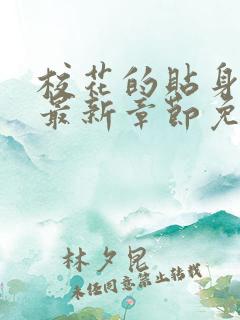 校花的贴身
最新章节免
林夕昆
未经同意禁止转载